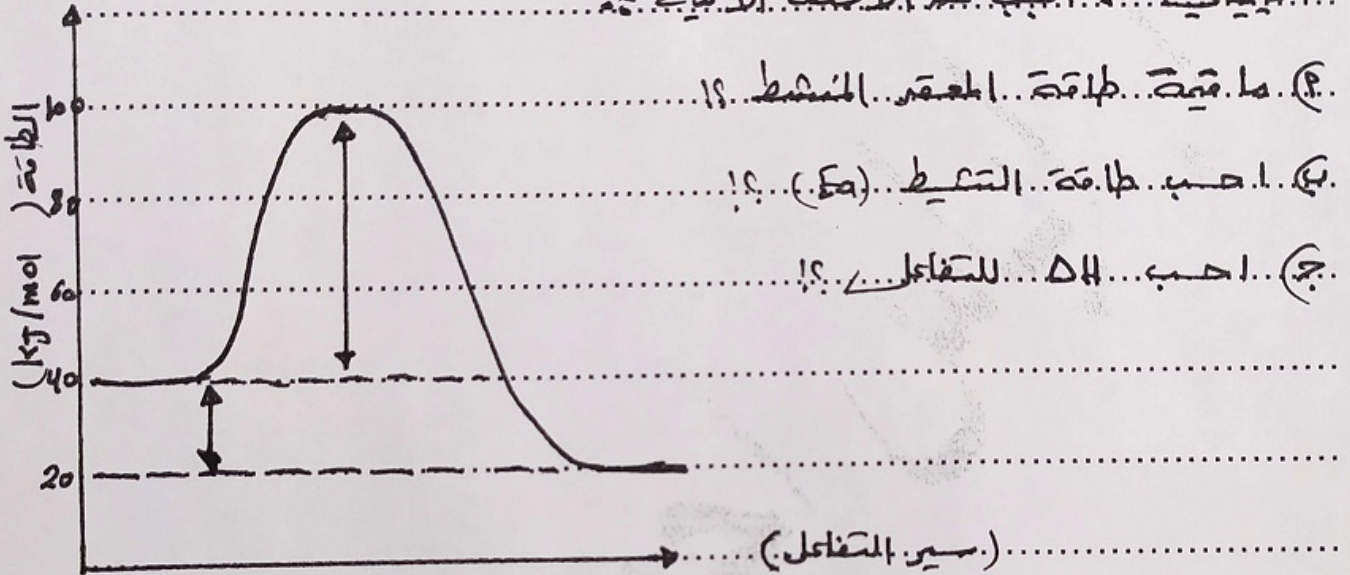 أ) ما قيمة طاقة المعقد المنشط ؟!
ب) احسب طاقة التنشيط (Ea) ؟!
ج) احسب ΔH للتفاعل ؟!
الطاقة (kJ/mol)
100
80
60
40
20
(سير التفاعل)